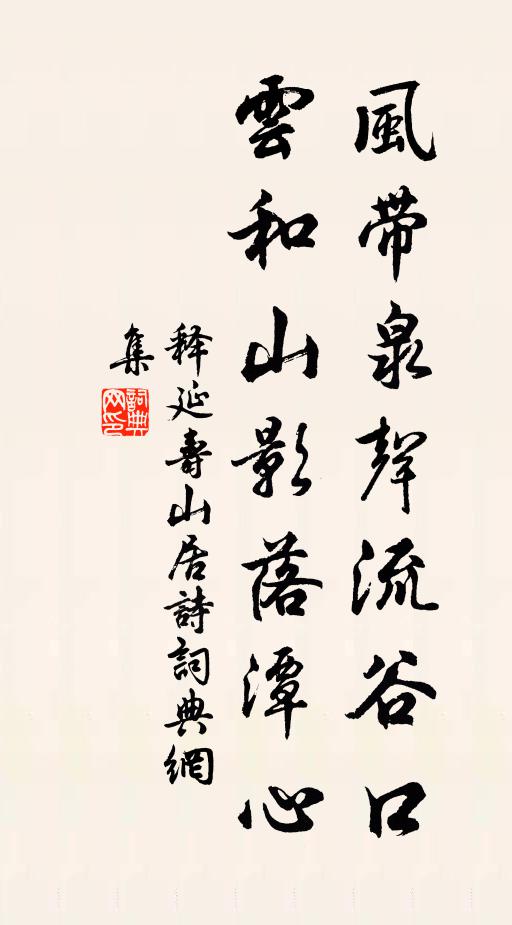 風帶泉聲流谷口
雲和山影落潭心
释延壽山居詩詞典網
集
詞典网印